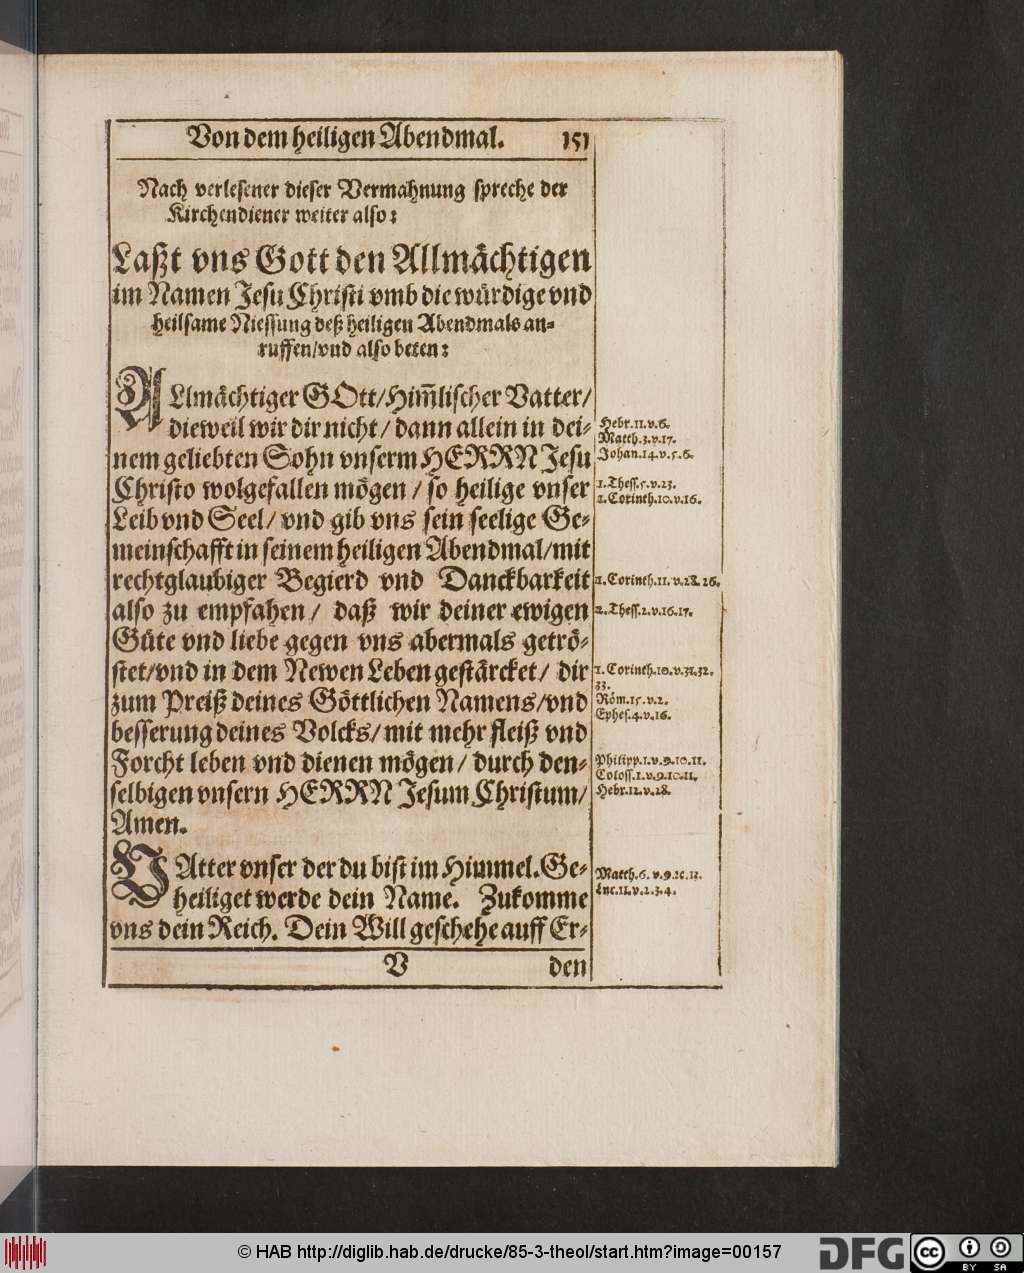 Von dem heiligen Abendmal. 151
Nach verlesener dieser Vermahnung spreche der
Kirchendiener weiter also:
Laßt vns Gott den Allmächtigen
im Namen Jesu Christi vmb die würdige vnd
heilsame Niessung deß heiligen Abendmals an-
ruffen/vnd also beten:
ALlmächtiger GOtt/Him̃lischer Vatter/
dieweil wir dir nicht/ dann allein in dei-
nem geliebten Sohn vnserm HERRN Jesu
Christo wolgefallen mögen / so heilige vnser
Leib vnd Seel/ vnd gib vns sein seelige Ge-
meinschafft in seinem heiligen Abendmal/mit
rechtglaubiger Begierd vnd Danckbarkeit
also zu empfahen / daß wir deiner ewigen
Güte vnd liebe gegen vns abermals getrö-
stet/vnd in dem Newen Leben gestärcket/ dir
zum Preiß deines Göttlichen Namens/vnd
besserung deines Volcks/ mit mehr fleiß vnd
Forcht leben vnd dienen mögen/ durch den-
selbigen vnsern HERRN Jesum Christum/
Amen.
VAtter vnser der du bist im Himmel. Ge-
heiliget werde dein Name. Zukomme
vns dein Reich. Dein Will geschehe auff Er-
V den
Hebr.11.v.6.
Matth.3.v.17.
Johan.14.v.5.6.
1.Thess.5.v.23.
1.Corinth.10.v.16.
1.Corinth.11.v.28.26.
2.Thess.2.v.16.17.
1.Corinth.10.v.31.32.
33.
Röm.15.v.2.
Ephes.4.v.16.
Philipp.1.v.9.10.11.
Coloss.1.v.9.10.11.
Hebr.12.v.28.
Matth.6.v.9.10.13.
Luc.11.v.2.3.4.
© HAB http://diglib.hab.de/drucke/85-3-theol/start.htm?image=00157
DFG
cc BY SA